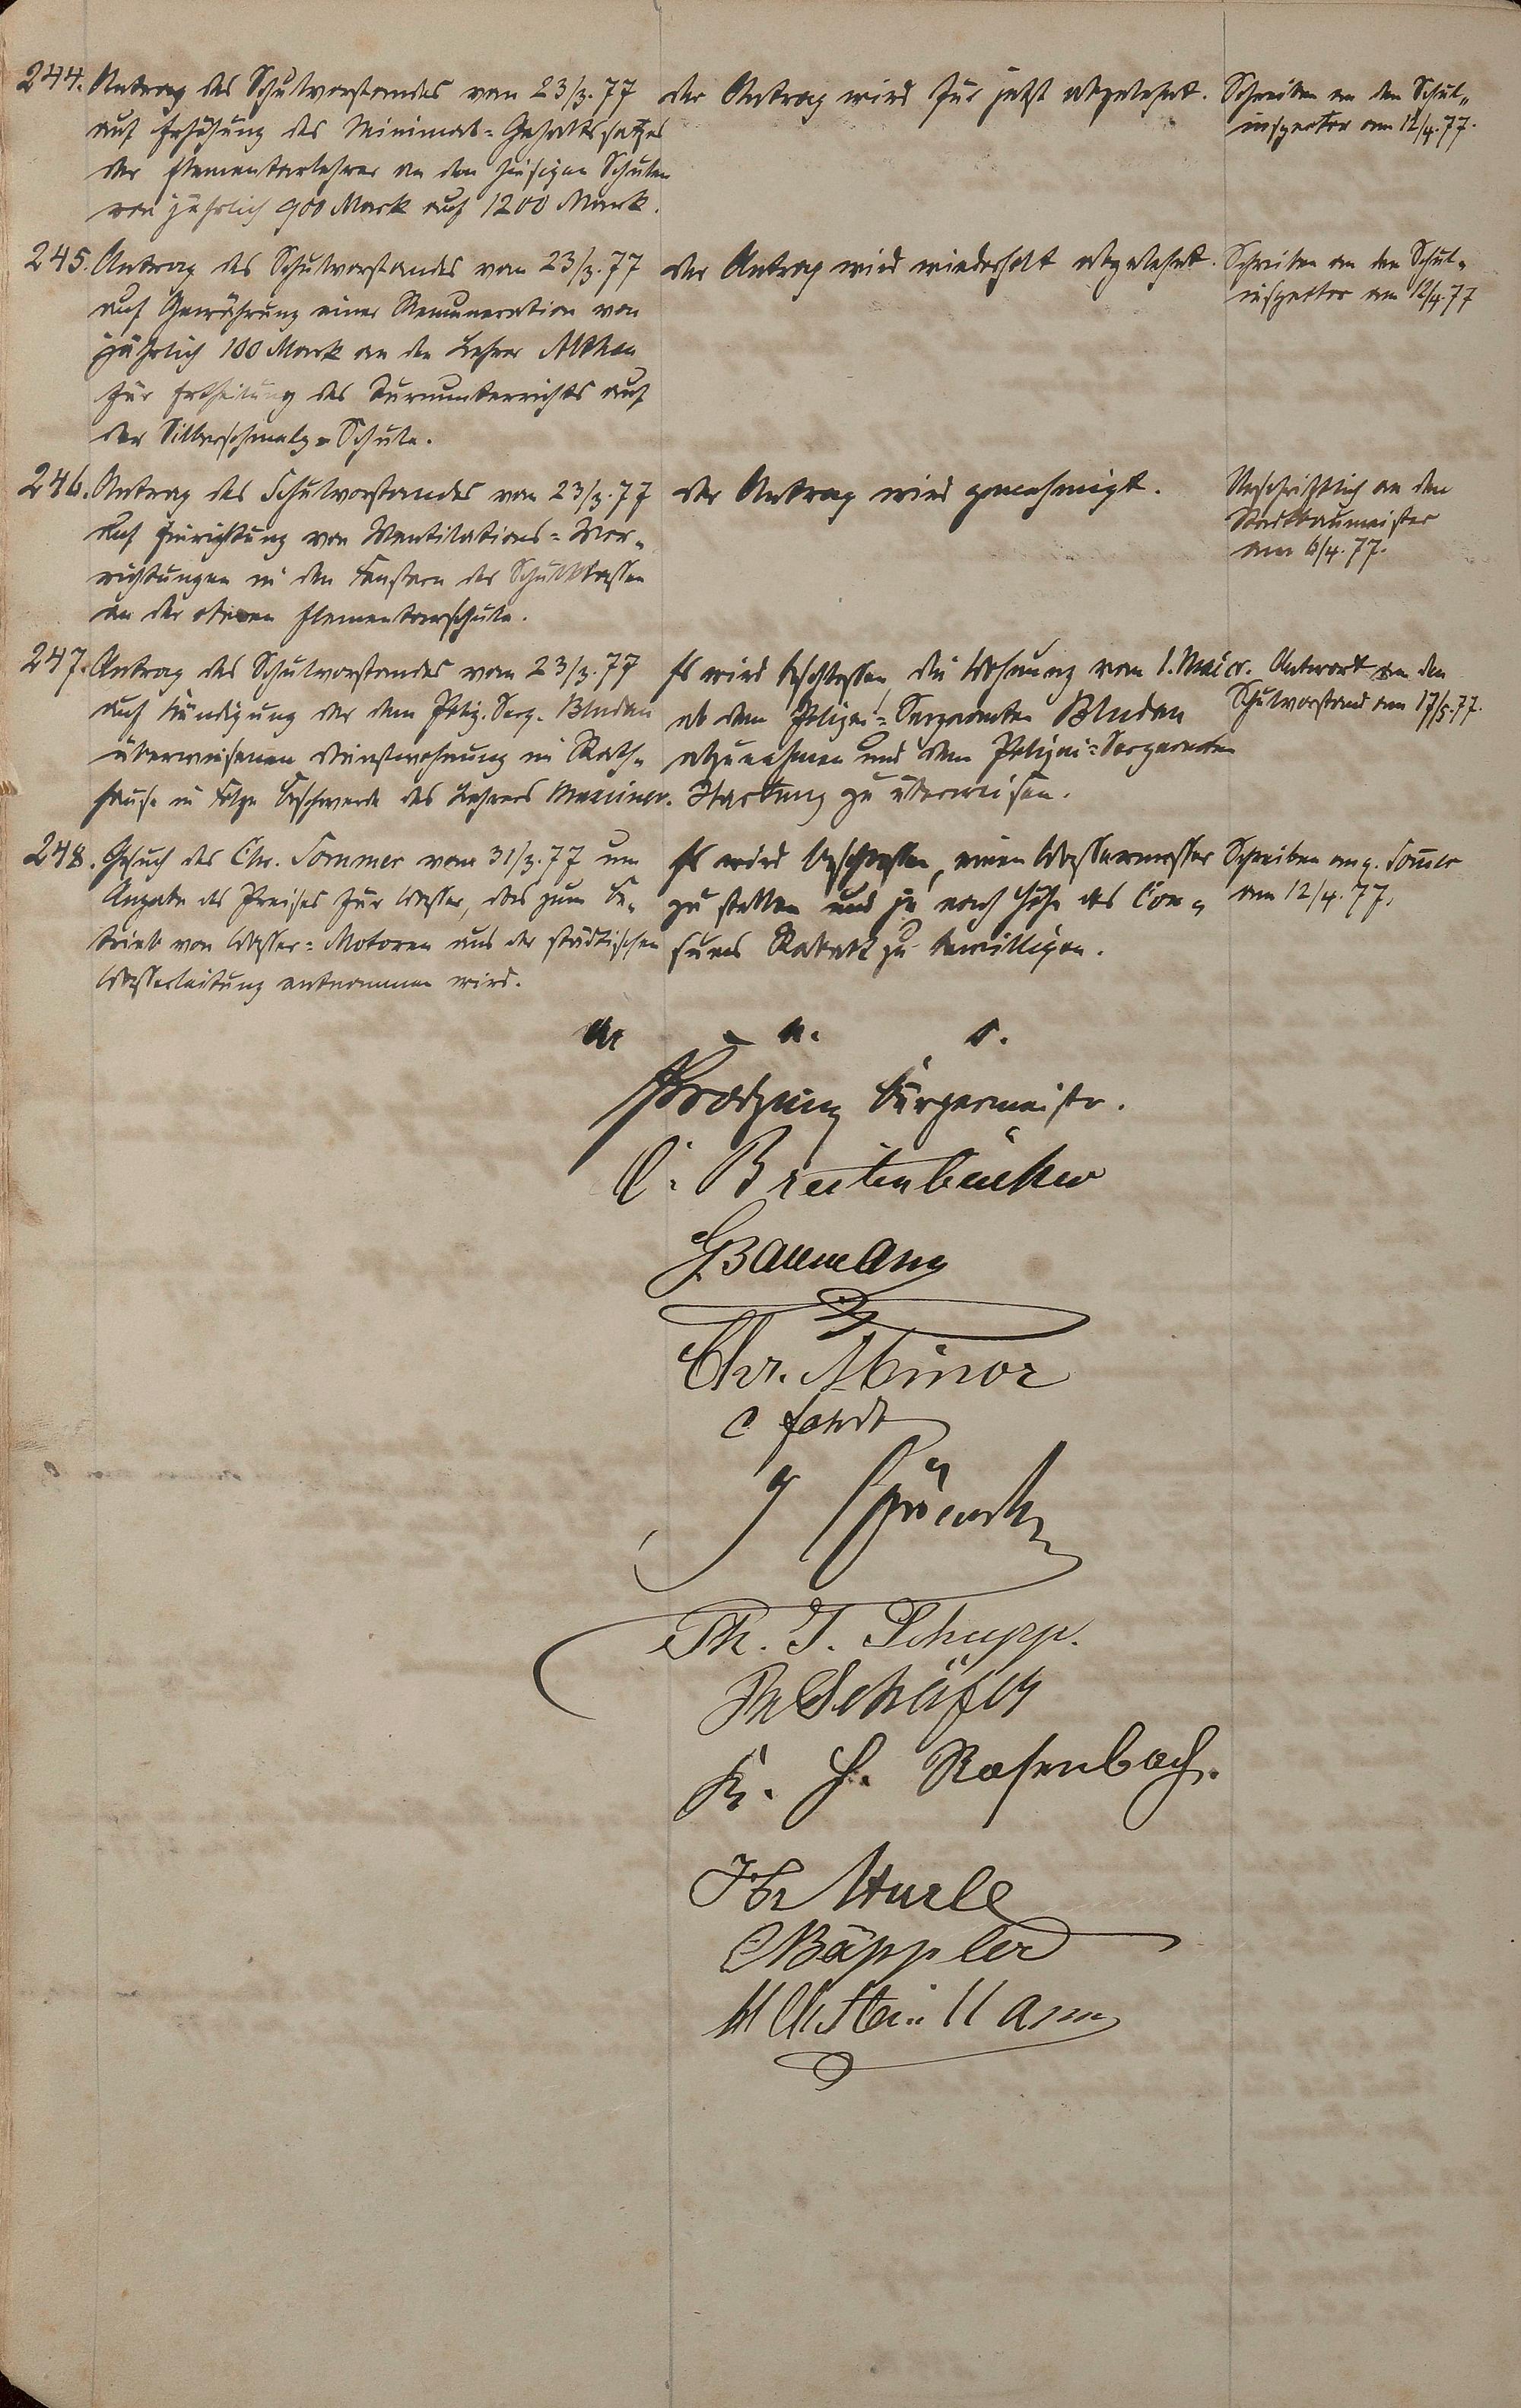 244. Antrag des Schulvorstandes vom 23/3.77
auf Erhöhung des Minimal=Gehaltssatzes
der Elementarlehrer an den hiesigen Schulen
von jährlich 900 Mark auf 1200 Mark.
der Antrag wird für jetzt abgelehnt.
Schreiben an den Schul„
inspector am 12/4.77.
245. Antrag des Schulvorstandes vom 23/3.77
auf Gewährung einer Remuneration von
jährlich 100 Mark an den Lehrer
für Ertheilung des Turnunterrichts auf
der Silberschmelz=Schule.
der Antrag wird wiederholt abgelehnt.
Schreiben an den Schul„
inspector am 12/4.77
246. Antrag des Schulvorstandes vom 23/3.77
auf Einrichtung von Ventilations=Vor„
richtungen in den Fenstern der Schulklassen
an der oberen Elementarschule.
der Antrag wird genehmigt.
Abschriftlich an den
Stadtbaumeister
am 6/4.77.
247. Antrag des Schulvorstandes vom 23/3.77
auf Kündigung der dem Poliz. Serg. Bludau
überwiesenen Dienstwohnung im Rath„
hause in Folge Beschwerde des Lehrers
Es wird beschlossen, die Wohnung vom 1. Mai cr.
ab dem Polizei=Sergeanten Bludau
abzunehmen und dem Polizei=Sergeanten
Hartung zu überweisen.
Antwort an den
Schulvorstand am 17/5.77.
248. Gesuch des Chr. Sommer vom 31/3.77 um
Angabe des Preises für Wasser, das zum Be„
trieb von Wasser=Motoren aus der städtischen
Wasserleitung entnommen wird.
Es wird beschlossen, einen Wassermesser
zu stellen und je nach Höhe des Con„
sums Rabatt zu bewilligen.
Schreiben an p. Som̅er
am 12/4.77.
a. u. s.
Bürgermeister.
C. Breitenbücher
G Baumann
Chr. Minor
J
Ph. J. Schupp.
Ph Schäfer
K. H. Rosenbach.
Sturle
C Bäppler